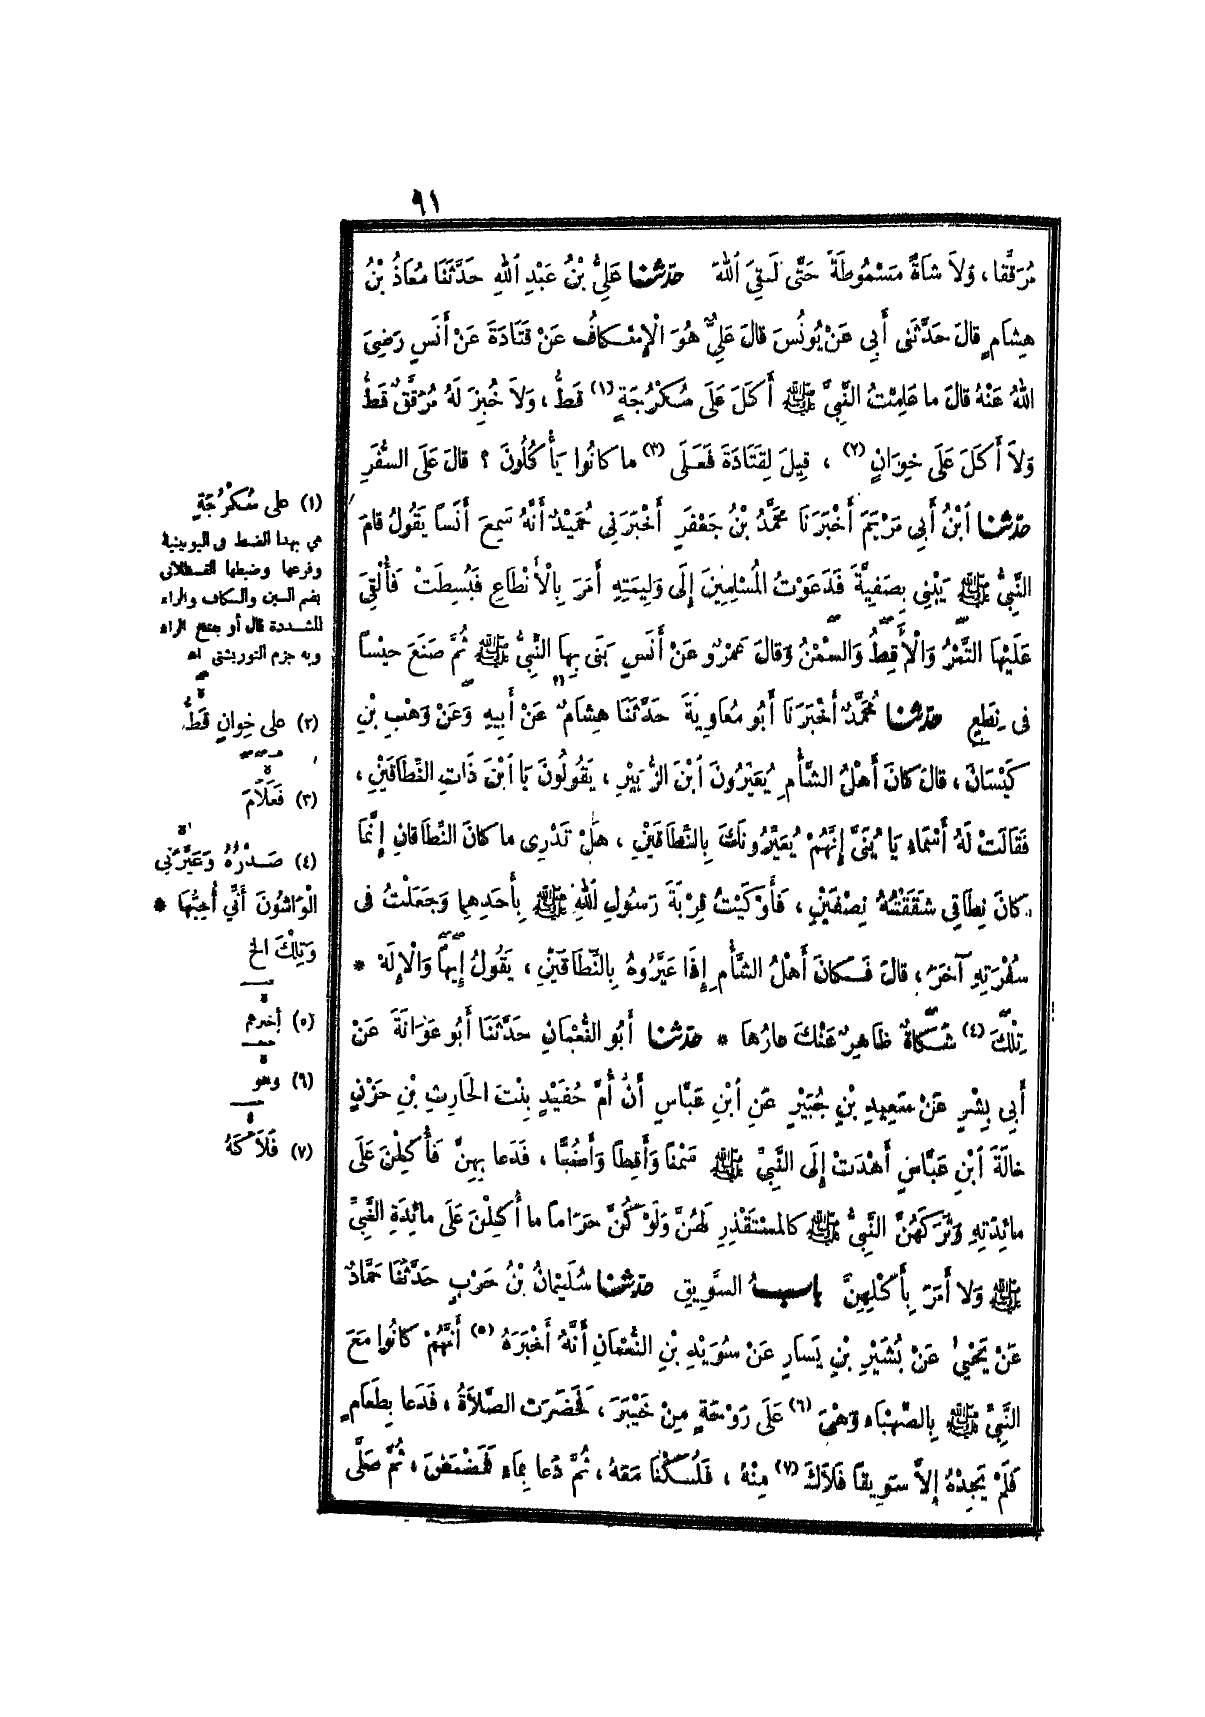 ٩١
مُرَقَّقًا ، وَلَا شَاةً مَسْمُوطَةً حَتَّى لَقِيَ اللهَ حَدَّثَنَا عَلِيُّ بْنُ عَبْدِ اللهِ حَدَّثَنَا مُعَاذُ بْنُ
هِشَامٍ قَالَ حَدَّثَنِي أَبِي عَنْ يُونُسَ قَالَ عَلِيٌّ هُوَ الْإِسْكَافُ عَنْ قَتَادَةَ عَنْ أَنَسٍ رَضِيَ
اللهُ عَنْهُ قَالَ مَا عَلِمْتُ النَّبِيَّ ﷺ أَكَلَ عَلَى سُكْرُجَةٍ (١) قَطُّ ، وَلَا خُبِزَ لَهُ مُرَقَّقٌ قَطُّ
وَلَا أَكَلَ عَلَى خِوَانٍ (٢) ، قِيلَ لِقَتَادَةَ فَعَلَى (٣) مَا كَانُوا يَأْكُلُونَ ؟ قَالَ عَلَى السُّفَرِ
حَدَّثَنَا ابْنُ أَبِي مَرْيَمَ أَخْبَرَنَا مُحَمَّدُ بْنُ جَعْفَرٍ أَخْبَرَنِي حُمَيْدٌ أَنَّهُ سَمِعَ أَنَسًا يَقُولُ قَامَ
النَّبِيُّ ﷺ يَبْنِي بِصَفِيَّةَ فَدَعَوْتُ الْمُسْلِمِينَ إِلَى وَلِيمَتِهِ أَمَرَ بِالْأَنْطَاعِ فَبُسِطَتْ فَأُلْقِيَ
عَلَيْهَا التَّمْرُ وَالْأَقِطُ وَالسَّمْنُ وَقَالَ عَمْرٌو عَنْ أَنَسٍ بَنَى بِهَا النَّبِيُّ ﷺ ثُمَّ صَنَعَ حَيْسًا
فِي نِطَعٍ حَدَّثَنَا مُحَمَّدٌ أَخْبَرَنَا أَبُو مُعَاوِيَةَ حَدَّثَنَا هِشَامٌ عَنْ أَبِيهِ وَعَنْ وَهْبِ بْنِ
كَيْسَانَ ، قَالَ كَانَ أَهْلُ الشَّأْمِ يُعَيِّرُونَ ابْنَ الزُّبَيْرِ ، يَقُولُونَ يَا ابْنَ ذَاتِ النِّطَاقَيْنِ ،
فَقَالَتْ لَهُ أَسْمَاءُ يَا بُنَيَّ إِنَّهُمْ يُعَيِّرُونَكَ بِالنِّطَاقَيْنِ ، هَلْ تَدْرِي مَا كَانَ النِّطَاقَانِ إِنَّمَا
كَانَ نِطَاقِي شَقَقْتُهُ نِصْفَيْنِ ، فَأَوْكَيْتُ قِرْبَةَ رَسُولِ اللهِ ﷺ بِأَحَدِهِمَا وَجَعَلْتُ فِي
سُفْرَتِهِ آخَرَ ، قَالَ فَكَانَ أَهْلُ الشَّأْمِ إِذَا عَيَّرُوهُ بِالنِّطَاقَيْنِ ، يَقُولُ إِيهًا وَالْإِلَهْ *
تِلْكَ (٤) شَكَاةٌ ظَاهِرٌ عَنْكَ عَارُهَا * حَدَّثَنَا أَبُو النُّعْمَانِ حَدَّثَنَا أَبُو عَوَانَةَ عَنْ
أَبِي بِشْرٍ عَنْ سَعِيدِ بْنِ جُبَيْرٍ عَنِ ابْنِ عَبَّاسٍ أَنَّ أُمَّ حُفَيْدٍ بِنْتَ الْحَارِثِ بْنِ حَزْنٍ
خَالَةَ ابْنِ عَبَّاسٍ أَهْدَتْ إِلَى النَّبِيِّ ﷺ سَمْنًا وَأَقِطًا وَأَضُبًّا ، فَدَعَا بِهِنَّ فَأُكِلْنَ عَلَى
مَائِدَتِهِ وَتَرَكَهُنَّ النَّبِيُّ ﷺ كَالْمُسْتَقْذِرِ لَهُنَّ وَلَوْ كُنَّ حَرَامًا مَا أُكِلْنَ عَلَى مَائِدَةِ النَّبِيِّ
ﷺ وَلَا أَمَرَ بِأَكْلِهِنَّ بَابُ السَّوِيقِ حَدَّثَنَا سُلَيْمَانُ بْنُ حَرْبٍ حَدَّثَنَا حَمَّادٌ
عَنْ يَحْيَى عَنْ بُشَيْرِ بْنِ يَسَارٍ عَنْ سُوَيْدِ بْنِ النُّعْمَانِ أَنَّهُ أَخْبَرَهُ (٥) أَنَّهُمْ كَانُوا مَعَ
النَّبِيِّ ﷺ بِالصَّهْبَاءِ وَهْيَ (٦) عَلَى رَوْحَةٍ مِنْ خَيْبَرَ ، فَحَضَرَتِ الصَّلَاةُ ، فَدَعَا بِطَعَامٍ
فَلَمْ يَجِدْهُ إِلَّا سَوِيقًا فَلَاكَ (٧) مِنْهُ ، فَلُكْنَا مَعَهُ ، ثُمَّ دَعَا بِمَاءٍ فَمَضْمَضَ ، ثُمَّ صَلَّى
(١) على سُكْرُجَةٍ
هي بهذا الضبط في اليونينية
وفرعها وضبطها القسطلاني
بضم السين والكاف والراء
المشددة قال أو بفتح الراء
وبه جزم التوربشتي اه
(٢) على خِوانٍ قَطُّ
(٣) فَعَلَامَ
(٤) صَدْرُهُ وَعَيَّرَنِي
الْوَاشُونَ أَنِّي أُحِبُّهَا *
وَتِلْكَ الخ
(٥) أخبرهم
(٦) وهو
(٧) فَلَاكَهُ